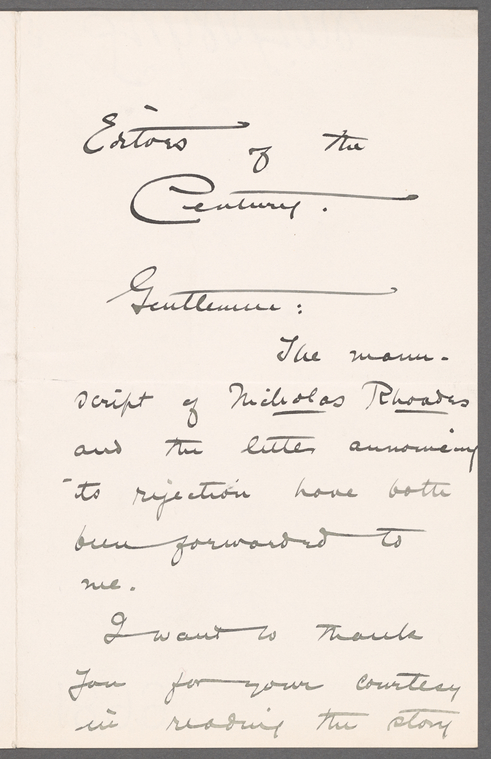 Editors of the
Century.
Gentlemen:
The manu-
script of Nicholas Rhoades
and the letter announcing
its rejection have both
been forwarded to
me.
I want to thank
you for your courtesy
in reading the story